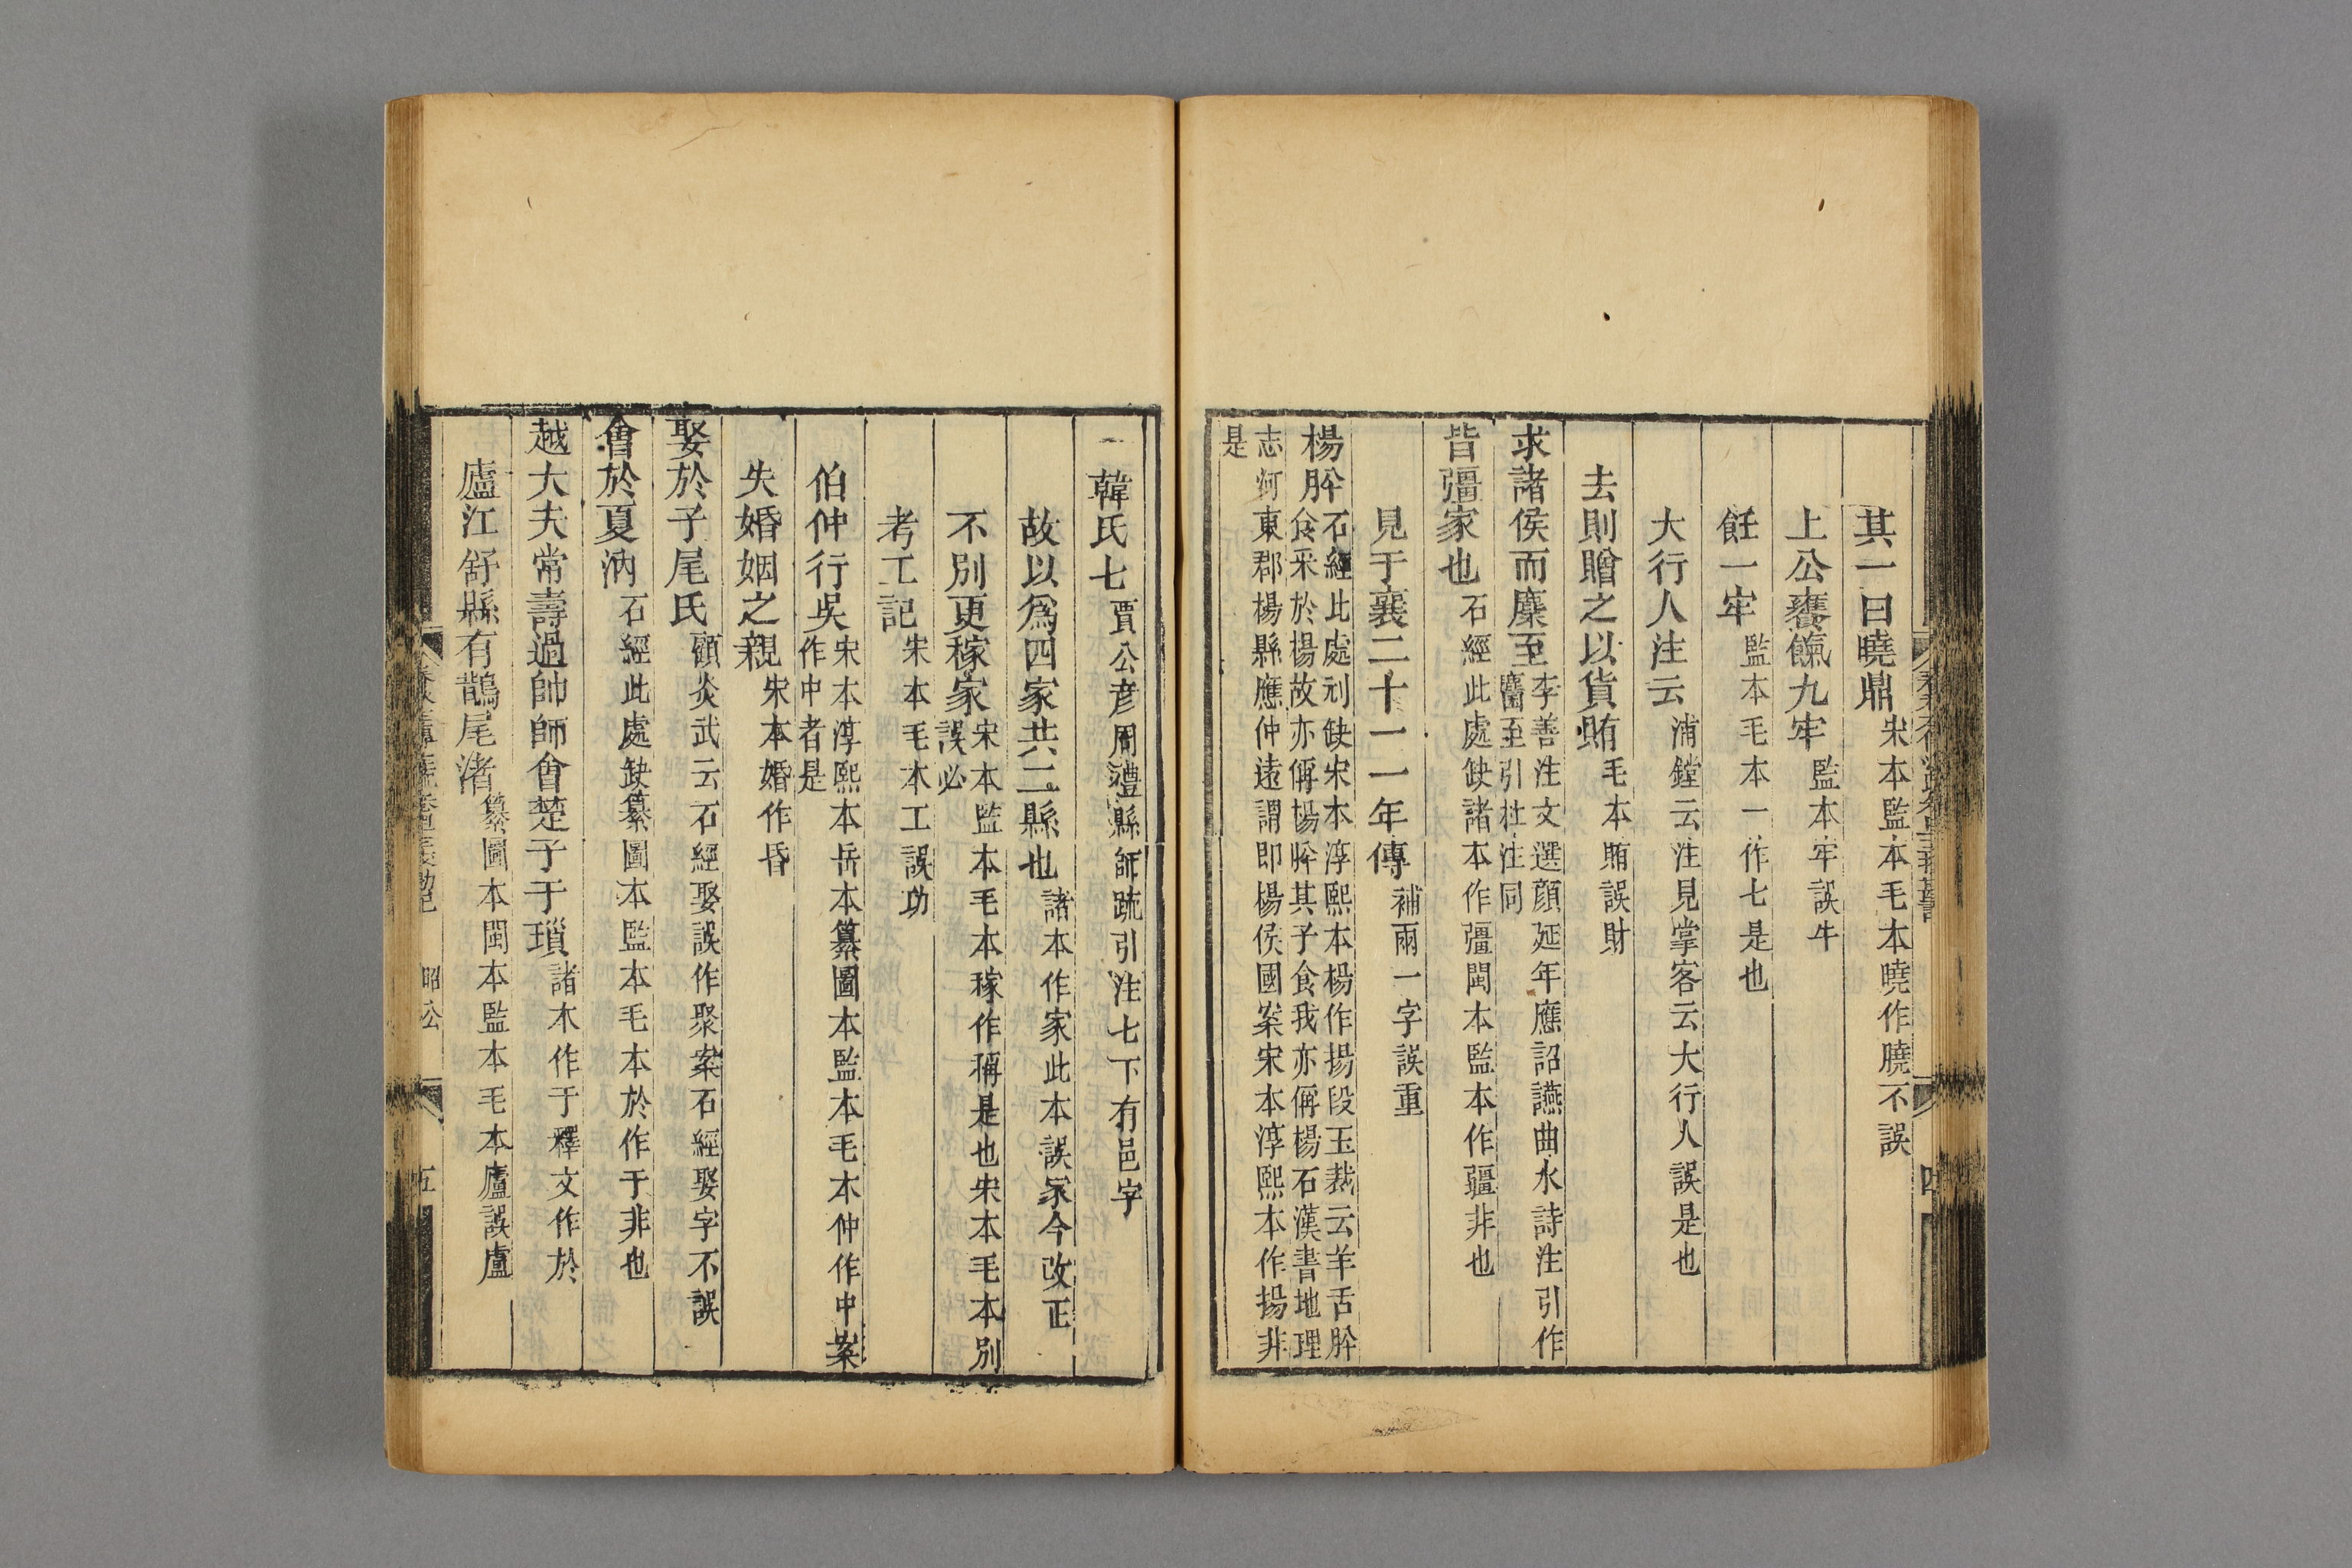 其一曰曉鼎宋本監本毛本曉作膮不誤
上公饔餼九牢監本牢誤牛
飪一牢監本毛本一作七是也
大行人注云浦鏜云注見掌客云大行人誤是也
去則贈之以貨賄毛本賄誤財
求諸侯而麇至李善注文選顏延年應詔讌曲水詩注引作
麕至引杜注同
皆彊家也石經此處缺諸本作彊閩本監本作疆非也
見于襄二十一一年傳補兩一字誤重
楊肸石經此處刓缺宋本淳熙本楊作揚段玉裁云羊舌肸
食采於揚故亦偁揚肸其子食我亦偁楊石漢書地理
志河東郡楊縣應仲遠謂即楊侯國案宋本淳熙本作揚非
是
四
韓氏七賈公彥周禮縣師疏引注七下有邑字
故以爲四家共二縣也諸本作家此本誤冢今改正
不別更稼家宋本監本毛本稼作稱是也宋本毛本別
誤必
考工記宋本毛本工誤功
伯仲行吳宋本淳熙本岳本纂圖本監本毛本仲作中案
作中者是
失婚姻之親宋本婚作昏
娶於子尾氏顧炎武云石經娶誤作聚案石經娶字不誤
會於夏汭石經此處缺纂圖本監本毛本於作于非也
越大夫常壽過帥師會楚子于瑣諸本作于釋文作於
廬江舒縣有鵲尾渚纂圖本閩本監本毛本廬誤盧
昭公
五